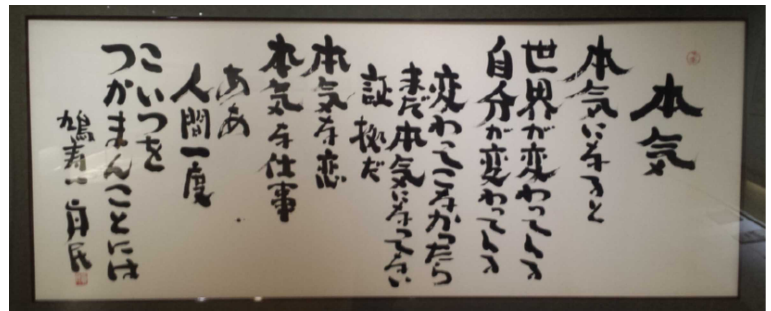 本気
本気になると
世界が変わってくる
自分が変わってくる
変わってこなかったら
まだ本気になってない
証拠だ
本気な恋
本気な仕事
ああ
人間一度
こいつを
つかまんことには
鳩寿一真民